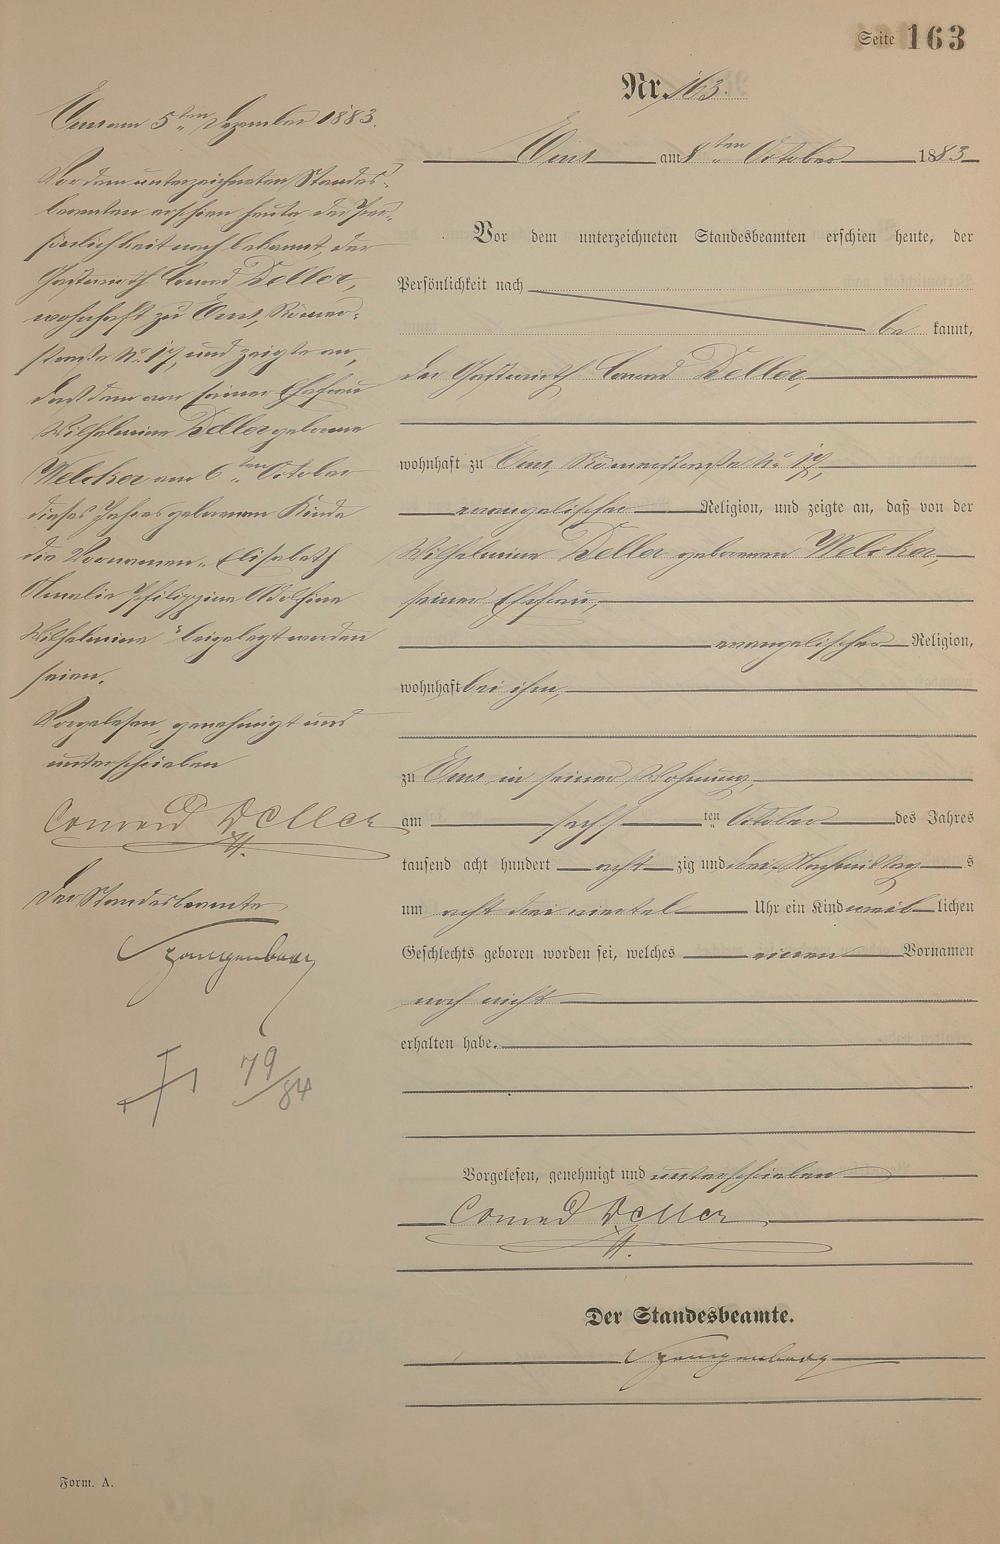 Seite 163
Nr. 163.
Ems am 8ten October 1883
Vor dem unterzeichneten Standesbeamten erschien heute, der
Persönlichkeit nach
be kannt,
der Gastwirth Conrad Deller,
wohnhaft zu Ems Römerstraße No 17,
evangelischer Religion, und zeigte an, daß von der
Wilhelmine Deller geborenen Welcker,
seiner Ehefrau,
evangelischer Religion,
wohnhaft bei ihm,
zu Ems in seiner Wohnung,
am sechsten October des Jahres
tausend acht hundert acht zig und drei Nachmittags
um acht drei viertel Uhr ein Kind weiblichen
Geschlechts geboren worden sei, welches einen Vornamen
noch nicht
erhalten habe.
Vorgelesen, genehmigt und unterschrieben
Conrad Deller
Der Standesbeamte.
Spangenberg
Ems am 5ten Dezember 1883.
Vor dem unterzeichneten Standes-
beamten erschien heute der Per-
sönlichkeit nach bekannt, der
Gastwirth Conrad Deller,
wohnhaft zu Ems, Römer-
straße No. 17, und zeigte an,
daß dem von seiner Ehefrau
Wilhelmine Deller geborne
Welcker am 6ten October
dieses Jahres geborenen Kinde
die Vornamen "Elisabeth
Amalie Philippine Adolfine
Wilhelmine" beigelegt worden
seien.
Vorgelesen, genehmigt und
unterschrieben
Conrad Deller
Der Standesbeamte
Spangenberg
† 79/84
Form. A.